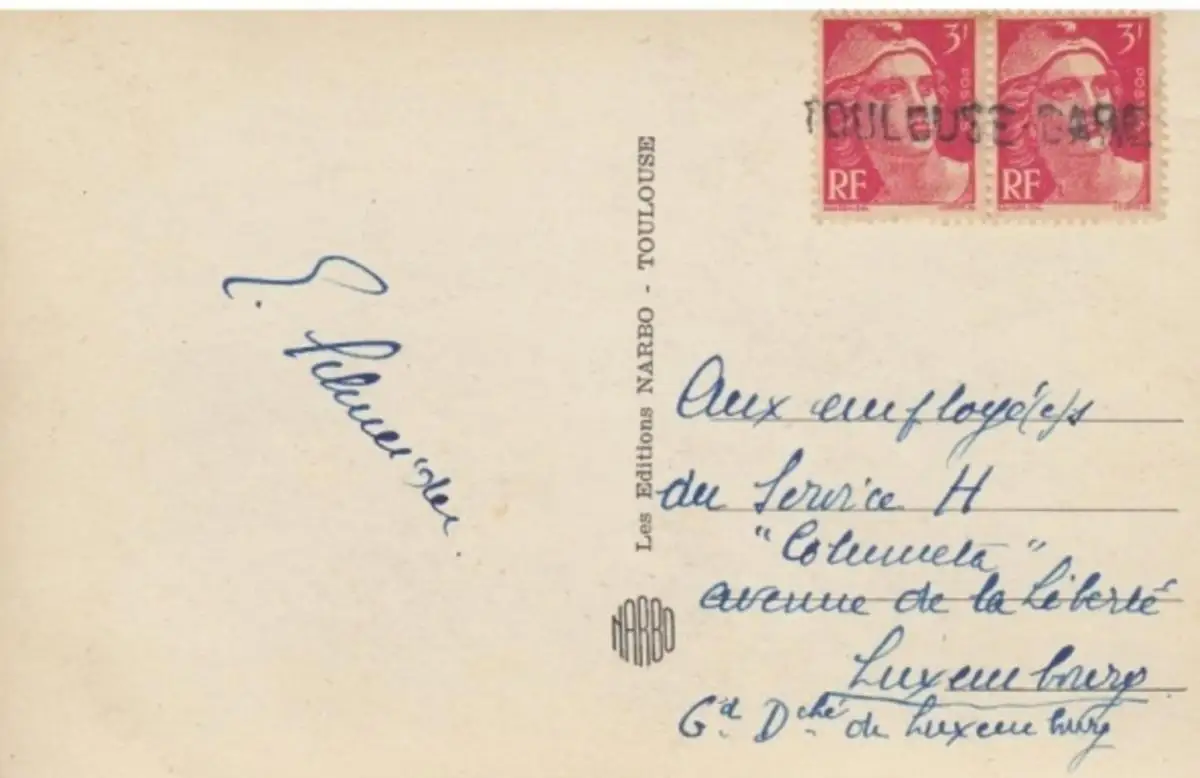 3F
3F
POSTES
TOULOUSE-GARE
RF
RF
E. Schneider.
Les Editions NARBO - TOULOUSE
NARBO
Aux employé(e)s
du Service H
"Columeta"
avenue de la Liberté
Luxembourg
Gd. Dché. de Luxemburg